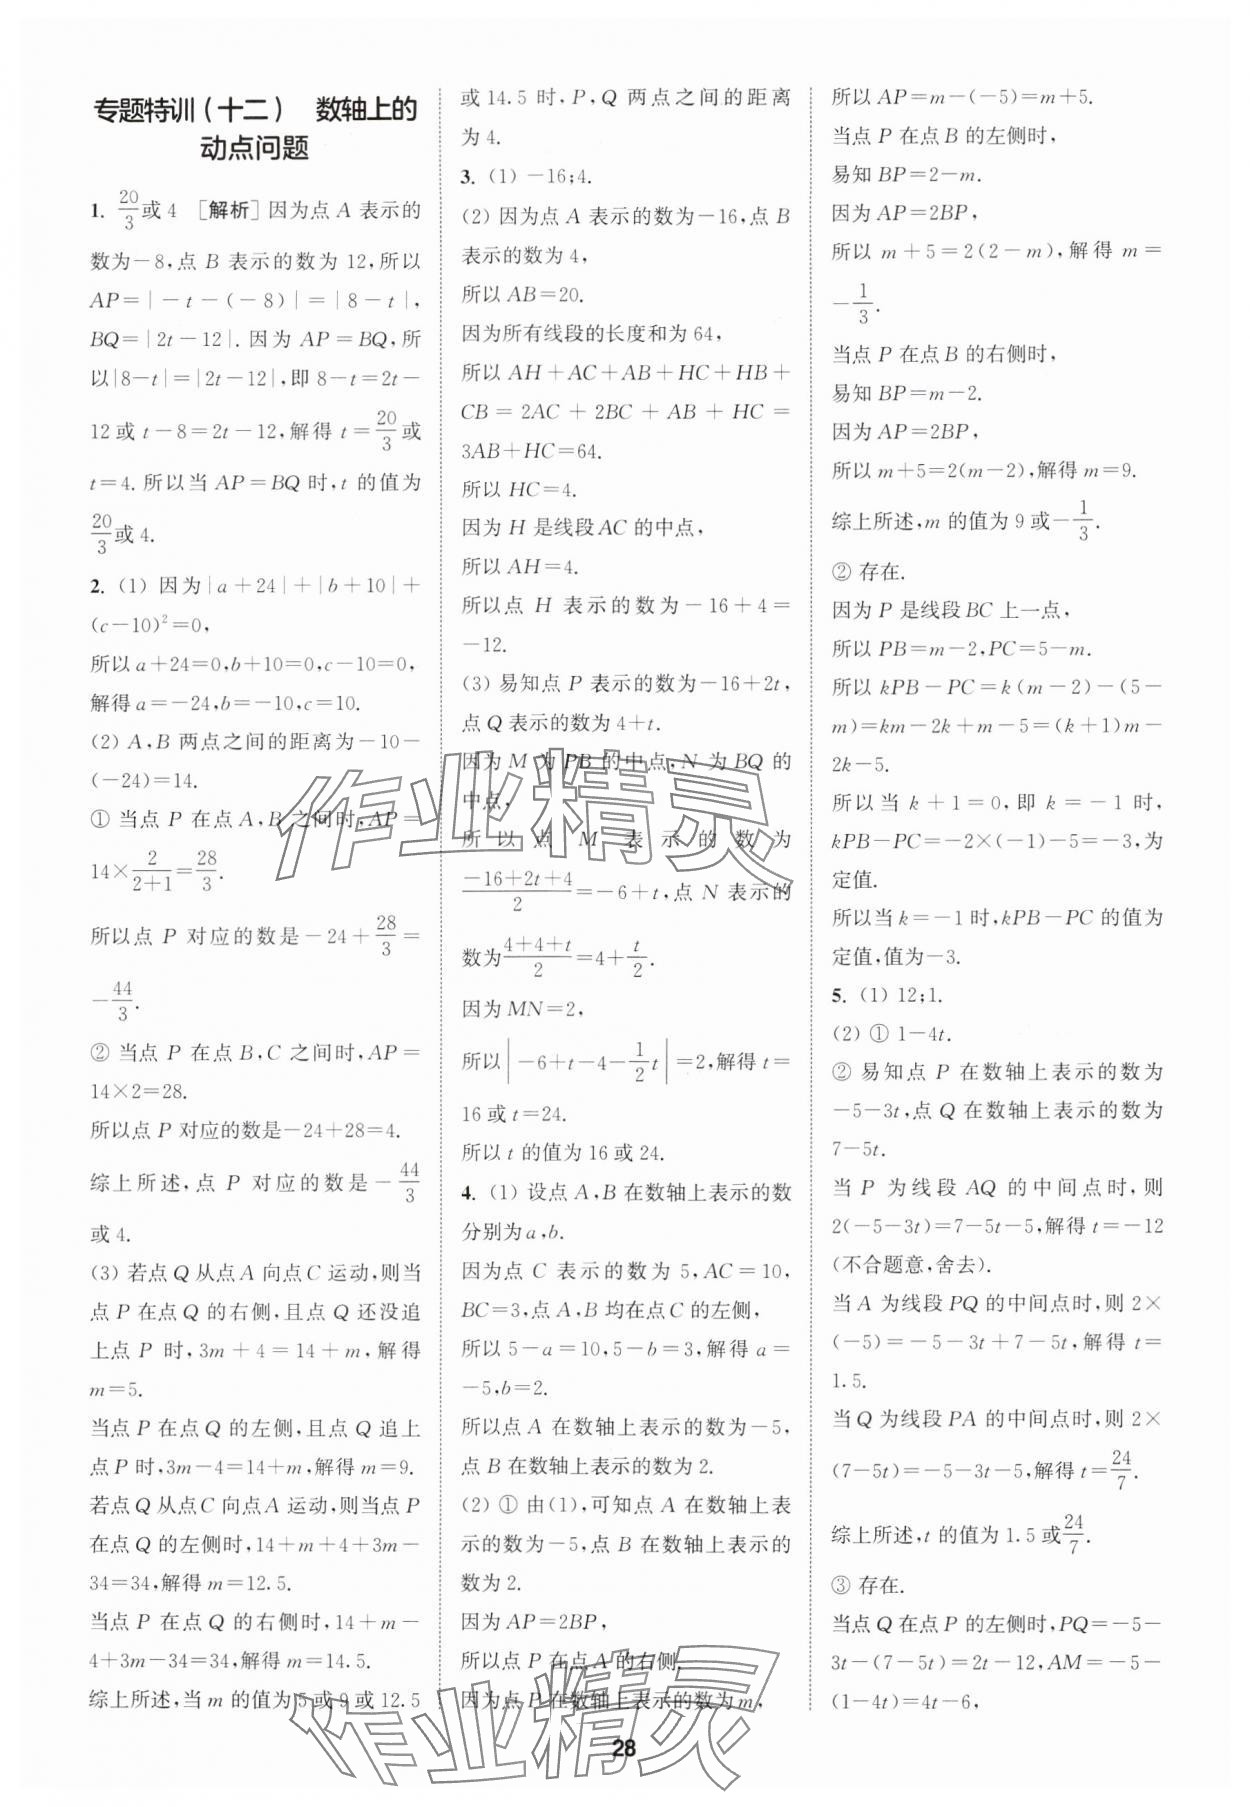 专题特训(十二) 数轴上的
动点问题
1. 20/3或4 [解析]因为点 A 表示的
数为－8,点 B 表示的数为 12,所以
AP=|－t－(－8)|=|8－t|,
BQ=|2t－12|.因为 AP=BQ,所
以|8－t|=|2t－12|,即 8－t=2t－
12或 t－8=2t－12,解得 t=20/3或
t=4.所以当 AP=BQ 时,t 的值为
20/3或 4.
2. (1) 因为|a+24|+|b+10|+
(c－10)²=0,
所以 a+24=0,b+10=0,c－10=0,
解得 a=－24,b=－10,c=10.
(2) A,B 两点之间的距离为－10－
(－24)=14.
① 当点 P 在点A,B 之间时,AP=
14×2/(2+1)=28/3.
所以点 P 对应的数是－24+28/3=
－44/3.
② 当点 P 在点B,C 之间时,AP=
14×2=28.
所以点 P 对应的数是－24+28=4.
综上所述,点 P 对应的数是－44/3
或 4.
(3) 若点Q 从点A 向点C 运动,则当
点 P 在点Q 的右侧,且点Q 还没追
上点 P 时,3m+4=14+m,解得
m=5.
当点 P 在点 Q 的左侧,且点 Q 追上
点 P 时,3m－4=14+m,解得 m=9.
若点Q 从点C 向点A 运动,则当点 P
在点 Q 的左侧时,14+m+4+3m－
34=34,解得 m=12.5.
当点 P 在点 Q 的右侧时,14+m－
4+3m－34=34,解得 m=14.5.
综上所述,当 m 的值为 5 或 9 或 12.5
或 14.5 时,P,Q 两点之间的距离
为 4.
3. (1) －16;4.
(2) 因为点 A 表示的数为－16,点 B
表示的数为 4,
所以 AB=20.
因为所有线段的长度和为 64,
所以 AH+AC+AB+HC+HB+
CB=2AC+2BC+AB+HC=
3AB+HC=64.
所以 HC=4.
因为 H 是线段 AC 的中点,
所以 AH=4.
所以点 H 表示的数为－16+4=
－12.
(3) 易知点 P 表示的数为－16+2t,
点 Q 表示的数为 4+t.
因为 M 为 PB 的中点,N 为 BQ 的
中点,
所以点 M 表示的数为
(－16+2t+4)/2=－6+t,点 N 表示的
数为(4+4+t)/2=4+t/2.
因为 MN=2,
所以|－6+t－4－1/2t|=2,解得 t=
16 或 t=24.
所以 t 的值为 16 或 24.
4. (1) 设点 A,B 在数轴上表示的数
分别为a,b.
因为点 C 表示的数为 5,AC=10,
BC=3,点 A,B 均在点 C 的左侧,
所以 5－a=10,5－b=3,解得 a=
－5,b=2.
所以点 A 在数轴上表示的数为－5,
点 B 在数轴上表示的数为 2.
(2) ① 由(1),可知点 A 在数轴上表
示的数为－5,点 B 在数轴上表示的
数为 2.
因为 AP=2BP,
所以点 P 在点 A 的右侧.
因为点 P 在数轴上表示的数为 m,
所以 AP=m－(－5)=m+5.
当点 P 在点 B 的左侧时,
易知 BP=2－m.
因为 AP=2BP,
所以 m+5=2(2－m),解得 m=
－1/3.
当点 P 在点 B 的右侧时,
易知 BP=m－2.
因为 AP=2BP,
所以 m+5=2(m－2),解得 m=9.
综上所述,m 的值为 9 或－1/3.
② 存在.
因为 P 是线段 BC 上一点,
所以 PB=m－2,PC=5－m.
所以 kPB－PC=k(m－2)－(5－
m)=km－2k+m－5=(k+1)m－
2k－5.
所以当 k+1=0,即 k=－1 时,
kPB－PC=－2×(－1)－5=－3,为
定值.
所以当 k=－1 时,kPB－PC 的值为
定值,值为－3.
5. (1) 12;1.
(2) ① 1－4t.
② 易知点 P 在数轴上表示的数为
－5－3t,点 Q 在数轴上表示的数为
7－5t.
当 P 为线段 AQ 的中间点时,则
2(－5－3t)=7－5t－5,解得 t=－12
(不合题意,舍去).
当 A 为线段 PQ 的中间点时,则 2×
(－5)=－5－3t+7－5t,解得 t=
1.5.
当 Q 为线段 PA 的中间点时,则 2×
(7－5t)=－5－3t－5,解得 t=24/7.
综上所述,t 的值为 1.5 或24/7.
③ 存在.
当点 Q 在点 P 的左侧时,PQ=－5－
3t－(7－5t)=2t－12,AM=－5－
(1－4t)=4t－6,
28
作业精灵
作业精灵